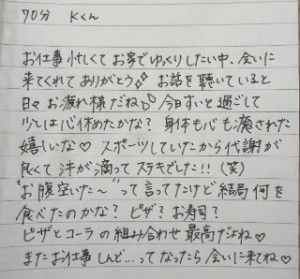 70分 Kくん
お仕事忙しくてお家でゆっくりしたい中、会いに
来てくれてありがとう♪♪ お話を聴いていると
日々お疲れ様だね♪♪ 今日ずいと過ごして
少しは心休めたかな? 身体も心も癒された
嬉しいな♡ スポーツしていたから代謝が
良くて汗が滴ってステキでした!!(笑)
"お腹空いた〜"って言ってたけど結局何を
食べたのかな? ピザ? お寿司?
ピザとコーラの組み合わせ最高だよね♡
またお仕事しんど...ってなったら会いに来てね♡